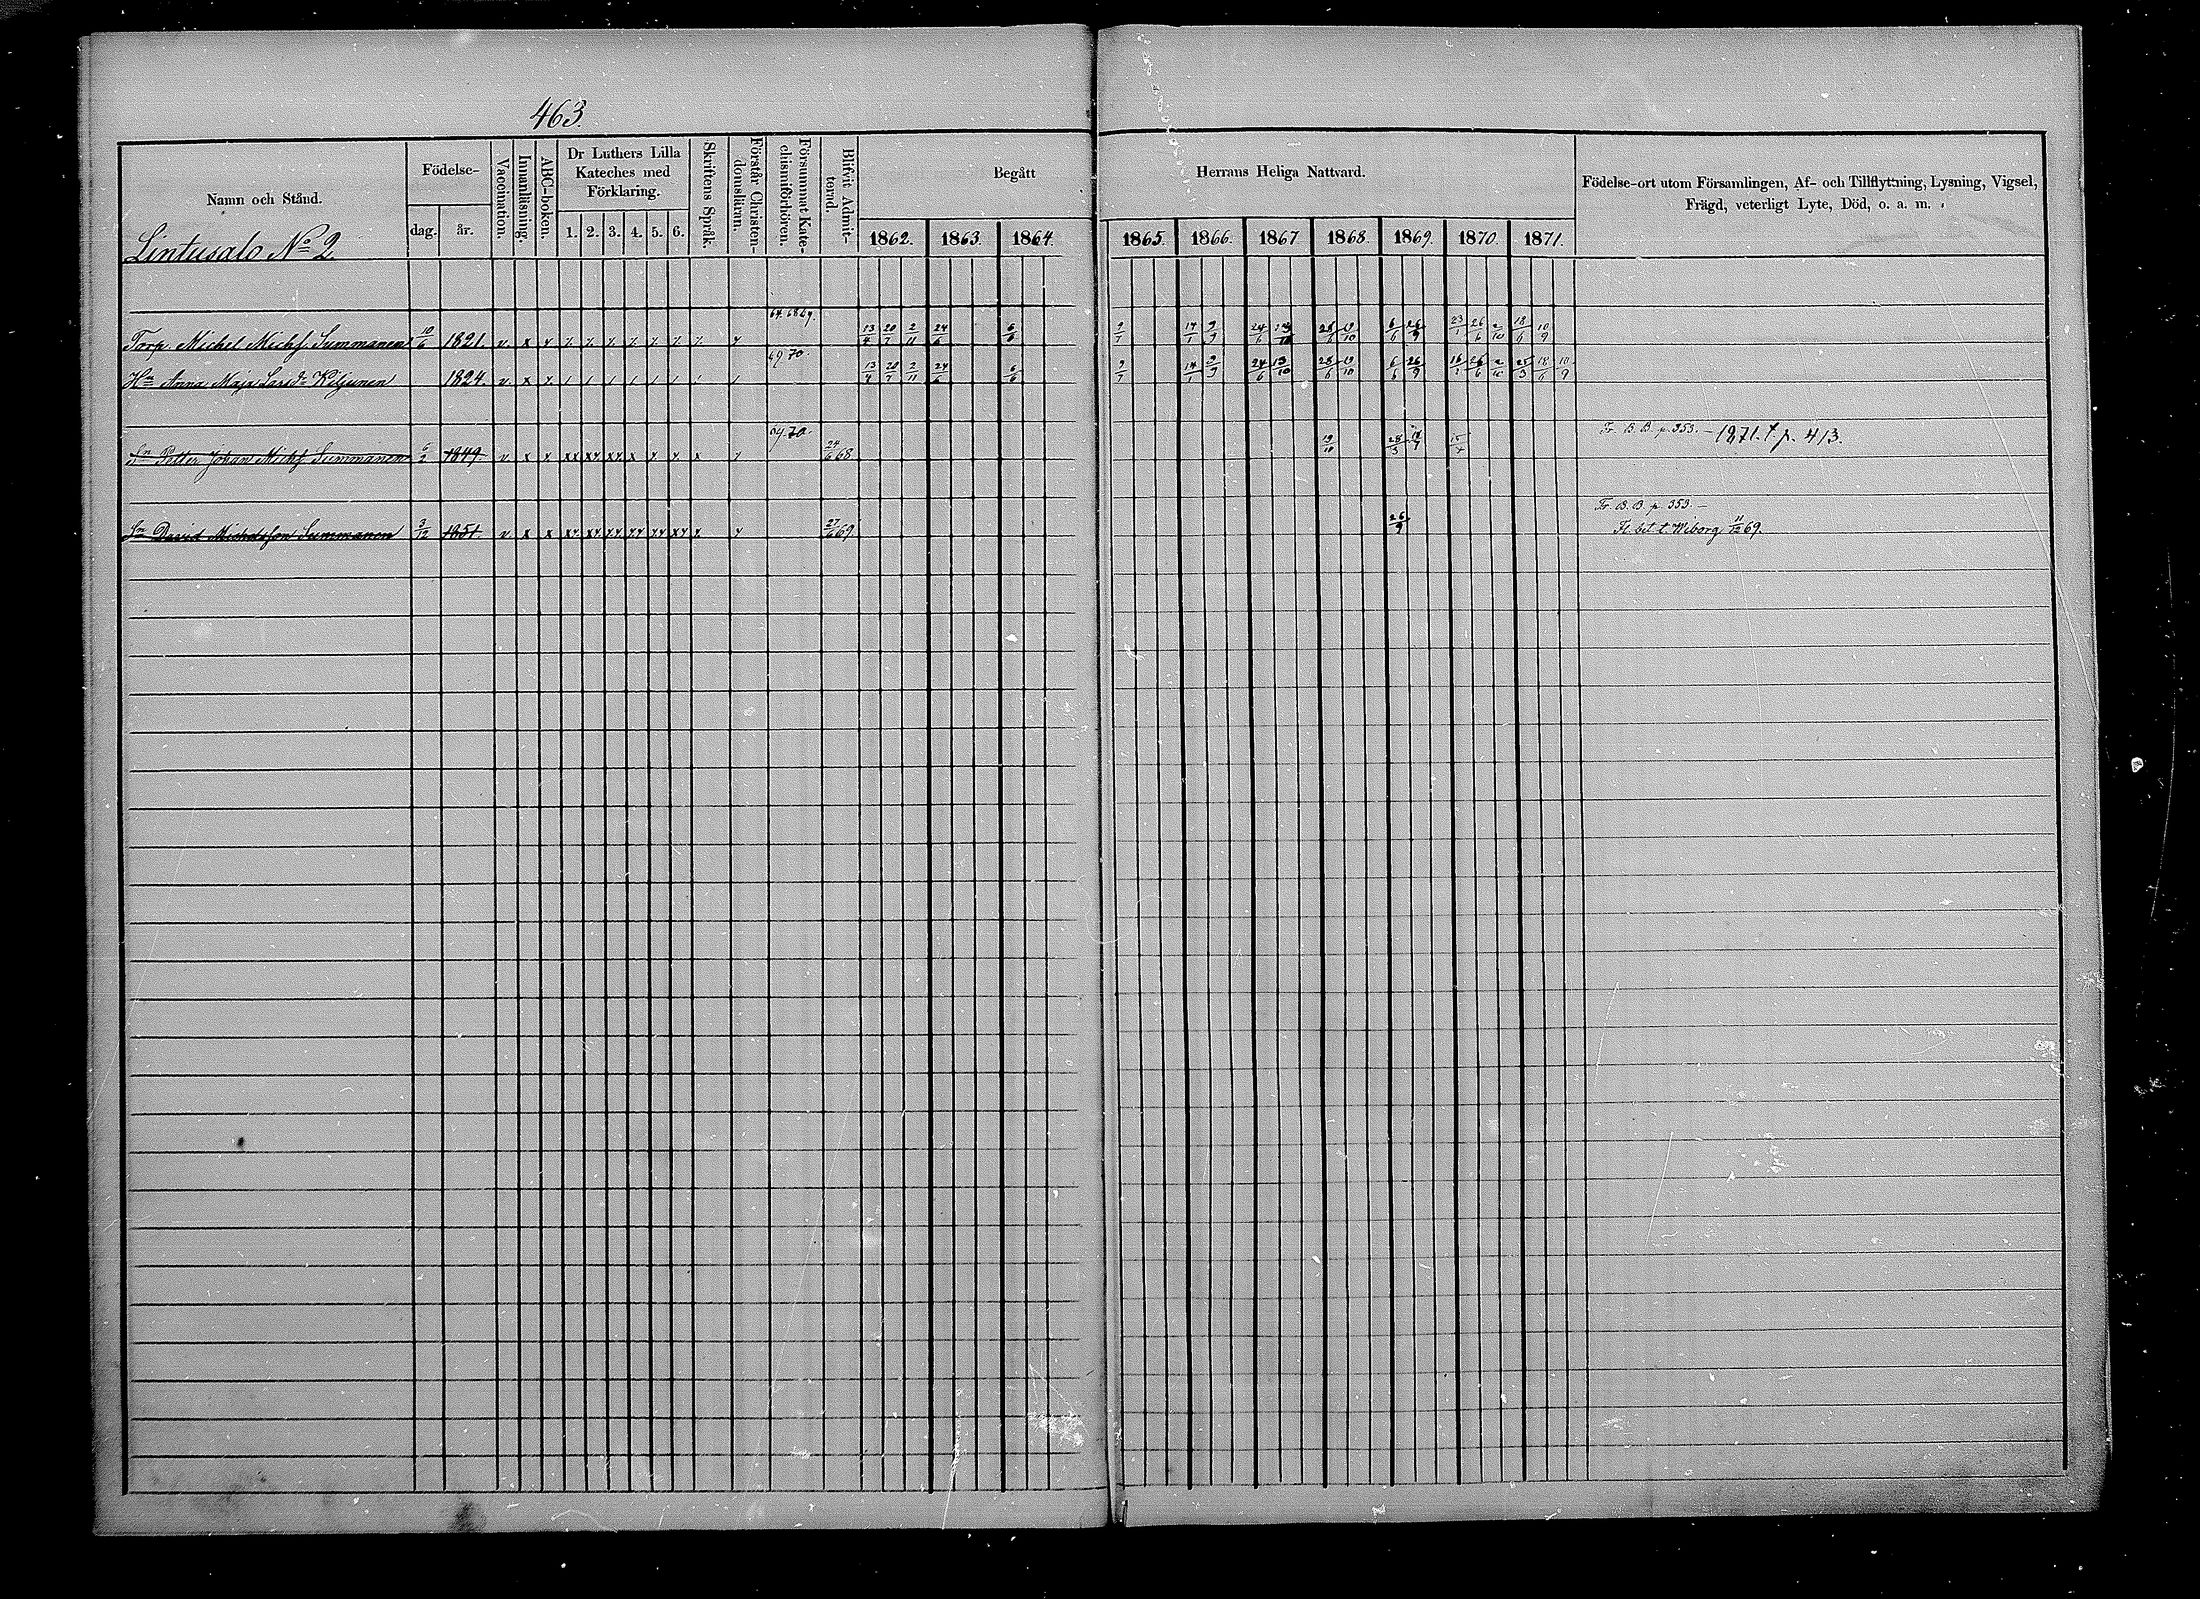 463.
Namn och Stånd.
Födelse-
dag. år.
Vaccination.
Innanläsning.
ABC-boken.
Dr Luthers Lilla
Kateches med
Förklaring.
1. 2. 3. 4. 5. 6.
Skriftens Språk.
Förstår Christen-
domsläran.
Försummat Kate-
chismiförhören.
Blifvit Admit-
terad.
Begått Herrans Heliga Nattvard.
1862. 1863. 1864. 1865. 1866. 1867 1868. 1869. 1870. 1871.
Födelse-ort utom Församlingen, Af- och Tillflyttning, Lysning, Vigsel,
Frägd, veterligt Lyte, Död, o. a. m.
Lintusalo No 2
Torp. Michel Michs Summanen 10/6 1821. v x 13/4 20/7 2/11 24/6 6/6 9/7 24/6 6/6 26/9 23/1 26/6 2/10 18/6 10/9
69.70
Hu Anna Maja Larsdr Kiljunen 1824. v x 13/4 20/7 2/11 24/6 6/6 9/7 24/6 13/10 28/6 6/6 26/9 26/6 18/6 10/9
69.70.
Sn Petter Johan Michs Summanen 1849. v x 24/6 68 Fr. B. B. p. 353. – 1871. t p. 413.
Sn David Michelsson Summanen 3/12 1851. v x x 27/6 69. 26/9 Fr. B. B. p. 353. –
Fl. bet. t. Wiborg 11/12 69.